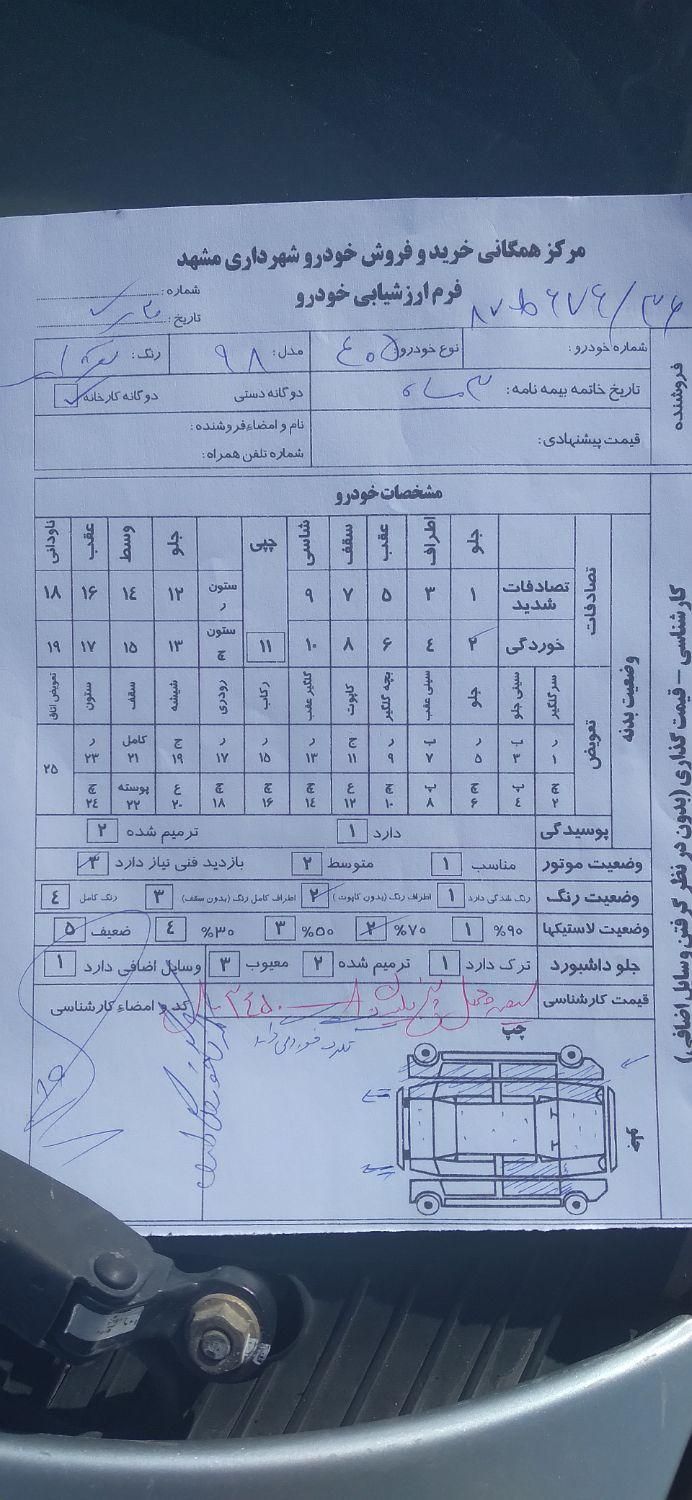 مرکز همگانی خرید و فروش خودرو شهرداری مشهد
فرم ارزشیابی خودرو
شماره :
تاریخ :
شماره خودرو :
نوع خودرو : ۴۰۵
مدل : ۹۸
رنگ :
تاریخ خاتمه بیمه نامه : ۳ ماه
دوگانه دستی
دوگانه کارخانه
قیمت پیشنهادی :
نام و امضاء فروشنده :
شماره تلفن همراه :
فروشنده
مشخصات خودرو
کارشناسی - قیمت گذاری (بدون در نظر گرفتن وسایل اضافی)
وضعیت بدنه
تصادفات
جلو اطراف عقب سقف شاسی پی جلو وسط عقب ناودانی
تصادفات شدید ۱ ۳ ۵ ۷ ۹ ستون ر ۱۲ ۱۴ ۱۶ ۱۸
خوردگی ۲ ۴ ۶ ۸ ۱۰ ۱۱ ستون چ ۱۳ ۱۵ ۱۷ ۱۹
تعویض
سر گلگیر سینی جلو جلو سینی عقب بچه گلگیر کاپوت گلگیر عقب رکاب رودری شیشه سقف ستون تعویض اتاق
ر ۱ ۳ ر ۵ ۷ ر ۹ ج ۱۱ ر ۱۳ ر ۱۵ ر ۱۷ ج ۱۹ کامل ۲۱ ر ۲۳ ۲۵
چ ۲ ۴ چ ۶ ۸ چ ۱۰ چ ۱۲ چ ۱۴ چ ۱۶ چ ۱۸ ع ۲۰ پوسته ۲۲ چ ۲۴
پوسیدگی دارد ۱ ترمیم شده ۲
وضعیت موتور مناسب ۱ متوسط ۲ بازدید فنی نیاز دارد ۳
وضعیت رنگ رنگ شدگی دارد ۱ اطراف رنگ (بدون کاپوت) ۲ اطراف کامل رنگ (بدون سقف) ۳ رنگ کامل ۴
وضعیت لاستیکها ۹۰% ۱ ۷۰% ۲ ۵۰% ۳ ۳۰% ۴ ضعیف ۵
جلو داشبورد ترک دارد ۱ ترمیم شده ۲ معیوب ۳ وسایل اضافی دارد ۱
قیمت کارشناسی
کد و امضاء کارشناسی
چپ
جلو